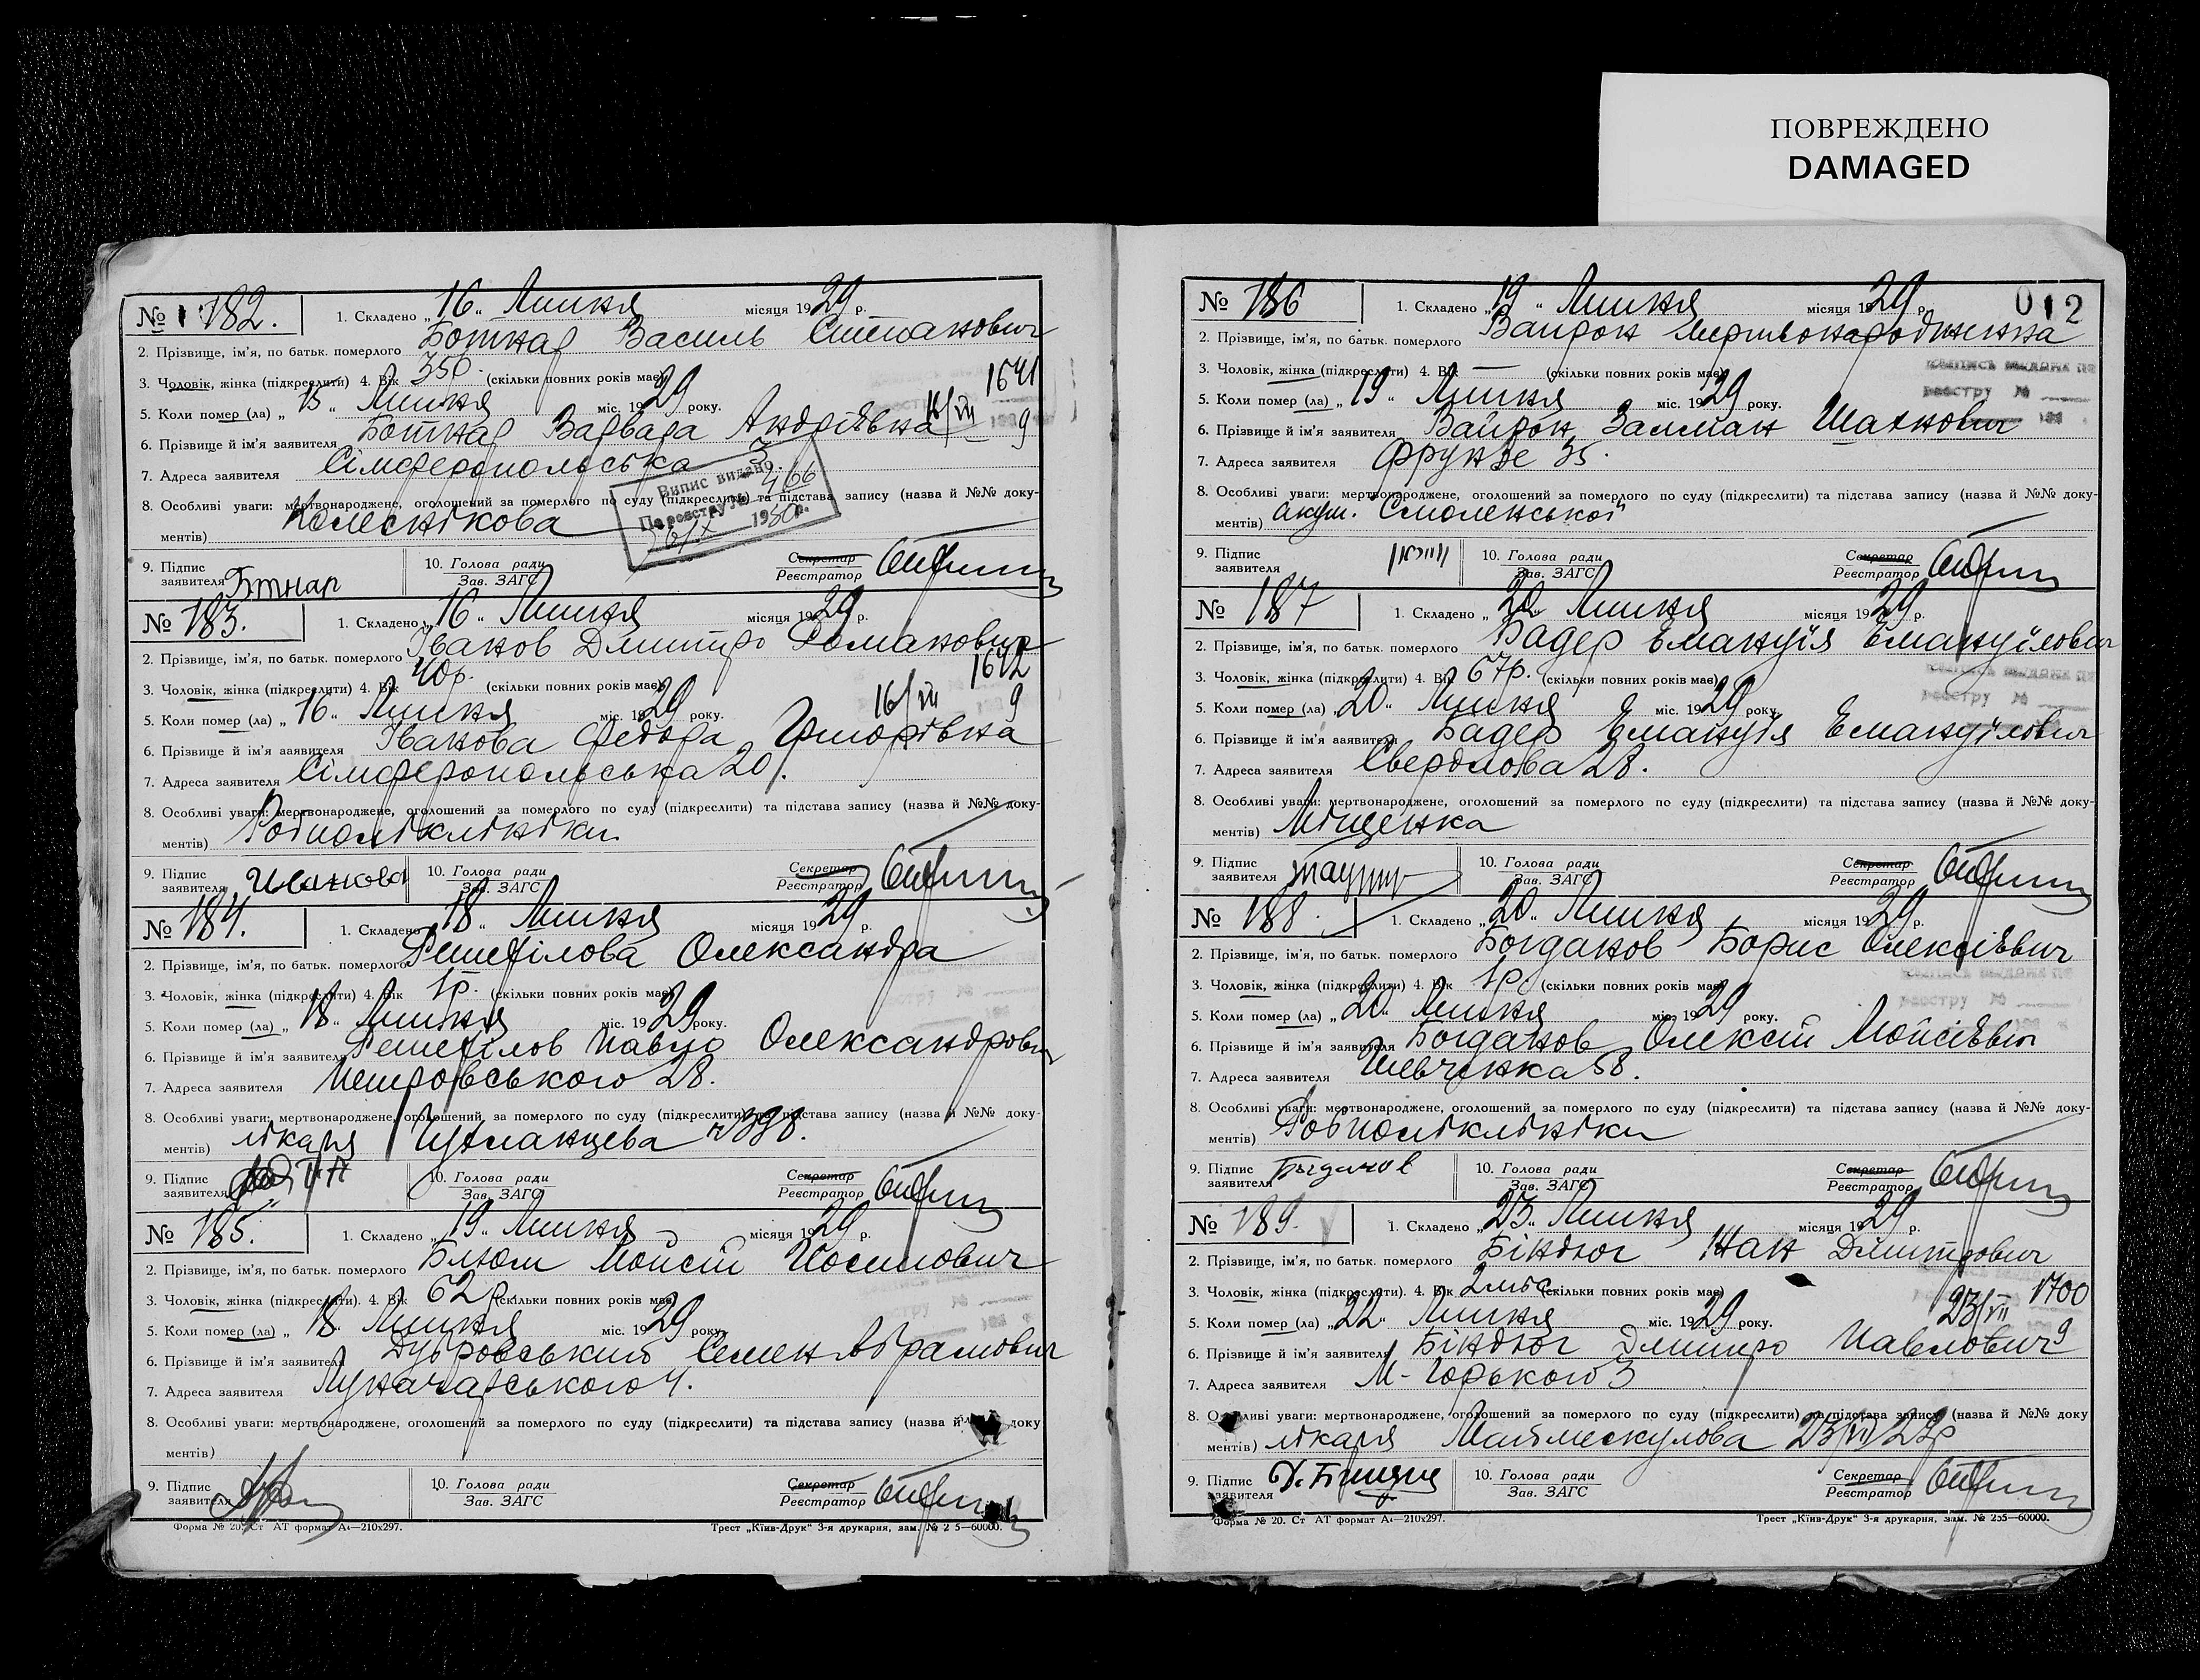 ПОВРЕЖДЕНО
DAMAGED
№ 182. 1. Складено „16" Липня місяця 1929 р.
2. Прізвище, ім'я, по батьк. померлого Ботнар Василь Степанович
3. Чоловік, жінка (підкреслити) 4. Вік 35р. (скільки повних років має) 1641
5. Коли помер (ла) „15" Липня міс. 1929 року. 16/VII 9
6. Прізвище й ім'я заявителя Ботнар Варвара Андріївна
7. Адреса заявителя Сімферопольська 3.
8. Особливі уваги: мертвонароджене, оголошений за померлого по суду (підкреслити) та підстава запису (назва й №№ доку-
ментів) Колеснікова
Випис видано
По реєстру № 466
1980р.
9. Підпис заявителя Бтнар 10. Голова ради Зав. ЗАГС Секретар Реєстратор
№ 183. 1. Складено „16" Липня місяця 1929 р.
2. Прізвище, ім'я, по батьк. померлого Іванов Дмитро Романович
3. Чоловік, жінка (підкреслити) 4. Вік 40р. (скільки повних років має) 1642
5. Коли помер (ла) „16" Липня міс. 1929 року. 16/VII 9
6. Прізвище й ім'я заявителя Іванова Федора Григорівна
7. Адреса заявителя Сімферопольська 20.
8. Особливі уваги: мертвонароджене, оголошений за померлого по суду (підкреслити) та підстава запису (назва й №№ доку-
ментів) Робполіклініки
9. Підпис заявителя Иванова 10. Голова ради Зав. ЗАГС Секретар Реєстратор
№ 184. 1. Складено „18" Липня місяця 1929 р.
2. Прізвище, ім'я, по батьк. померлого Решетілова Олександра
3. Чоловік, жінка (підкреслити) 4. Вік 1р. (скільки повних років має)
5. Коли помер (ла) „18" Липня міс. 1929 року.
6. Прізвище й ім'я заявителя Решетілов Павло Олександрович
7. Адреса заявителя Петровського 28.
8. Особливі уваги: мертвонароджене, оголошений за померлого по суду (підкреслити) та підстава запису (назва й №№ доку-
ментів) лікаря №398.
9. Підпис заявителя 10. Голова ради Зав. ЗАГС Секретар Реєстратор
№ 185. 1. Складено „19" Липня місяця 1929 р.
2. Прізвище, ім'я, по батьк. померлого Блюм Мойсій Йосипович
3. Чоловік, жінка (підкреслити). 4. Вік 62р. (скільки повних років має)
5. Коли помер (ла) „18" Липня міс. 1929 року.
6. Прізвище й ім'я заявителя Дубровський Семен Абрамович
7. Адреса заявителя Луначарського 4.
8. Особливі уваги: мертвонароджене, оголошений за померлого по суду (підкреслити) та підстава запису (назва й доку
ментів)
9. Підпис заявителя 10. Голова ради Зав. ЗАГС Секретар Реєстратор
Форма № 20. Ст АТ формат А4—210х297. Трест „Київ-Друк" 3-я друкарня, зам. № 2 5—60000.
№ 186 1. Складено „19" Липня місяця 1929 р. 012
2. Прізвище, ім'я, по батьк. померлого Вайрон мертвонароджена
3. Чоловік, жінка (підкреслити) 4. Вік — (скільки повних років має)
5. Коли помер (ла) „19" Липня міс. 1929 року.
6. Прізвище й ім'я заявителя Вайрон Залман Шахнович
7. Адреса заявителя Фрунзе 35.
8. Особливі уваги: мертвонароджене, оголошений за померлого по суду (підкреслити) та підстава запису (назва й №№ доку-
ментів) акуш. Смоленської
9. Підпис заявителя 10. Голова ради Зав. ЗАГС Секретар Реєстратор
№ 187 1. Складено „20" Липня місяця 1929 р.
2. Прізвище, ім'я, по батьк. померлого Бадер Емануїл Емануїлович
3. Чоловік, жінка (підкреслити) 4. Вік 67р. (скільки повних років має)
5. Коли помер (ла) „20" Липня міс. 1929 року.
6. Прізвище й ім'я заявителя Бадер Емануїл Емануїлович
7. Адреса заявителя Свердлова 28.
8. Особливі уваги: мертвонароджене, оголошений за померлого по суду (підкреслити) та підстава запису (назва й №№ доку-
ментів) Міщенка
9. Підпис заявителя 10. Голова ради Зав. ЗАГС Секретар Реєстратор
№ 188. 1. Складено „20" Липня місяця 1929 р.
2. Прізвище, ім'я, по батьк. померлого Богданов Борис Олексіевич
3. Чоловік, жінка (підкреслити) 4. Вік 1р (скільки повних років має)
5. Коли помер (ла) „20" Липня міс. 1929 року.
6. Прізвище й ім'я заявителя Богданов Олексій Мойсієвич
7. Адреса заявителя Шевченка 58.
8. Особливі уваги: мертвонароджене, оголошений за померлого по суду (підкреслити) та підстава запису (назва й №№ доку-
ментів) Робполіклініки
9. Підпис заявителя Богданов 10. Голова ради Зав. ЗАГС Секретар Реєстратор
№ 189. 1. Складено „23" Липня місяця 1929 р.
2. Прізвище, ім'я, по батьк. померлого Біндюг Жан Дмитрович
3. Чоловік, жінка (підкреслити). 4. Вік 2міс (скільки повних років має) 1700
5. Коли помер (ла) „22" Липня міс. 1929 року. 23/VII 9
6. Прізвище й ім'я заявителя Біндюг Дмитро Павлович
7. Адреса заявителя М-Горького 3
8. Особливі уваги: мертвонароджене, оголошений за померлого по суду (підкреслити) та підстава запису (назва й №№ доку
ментів) лікаря 23/VII 29р
9. Підпис заявителя 10. Голова ради Зав. ЗАГС Секретар Реєстратор
Форма № 20. Ст АТ формат А4—210х297. Трест „Київ-Друк" 3-я друкарня, зам. № 255—60000.